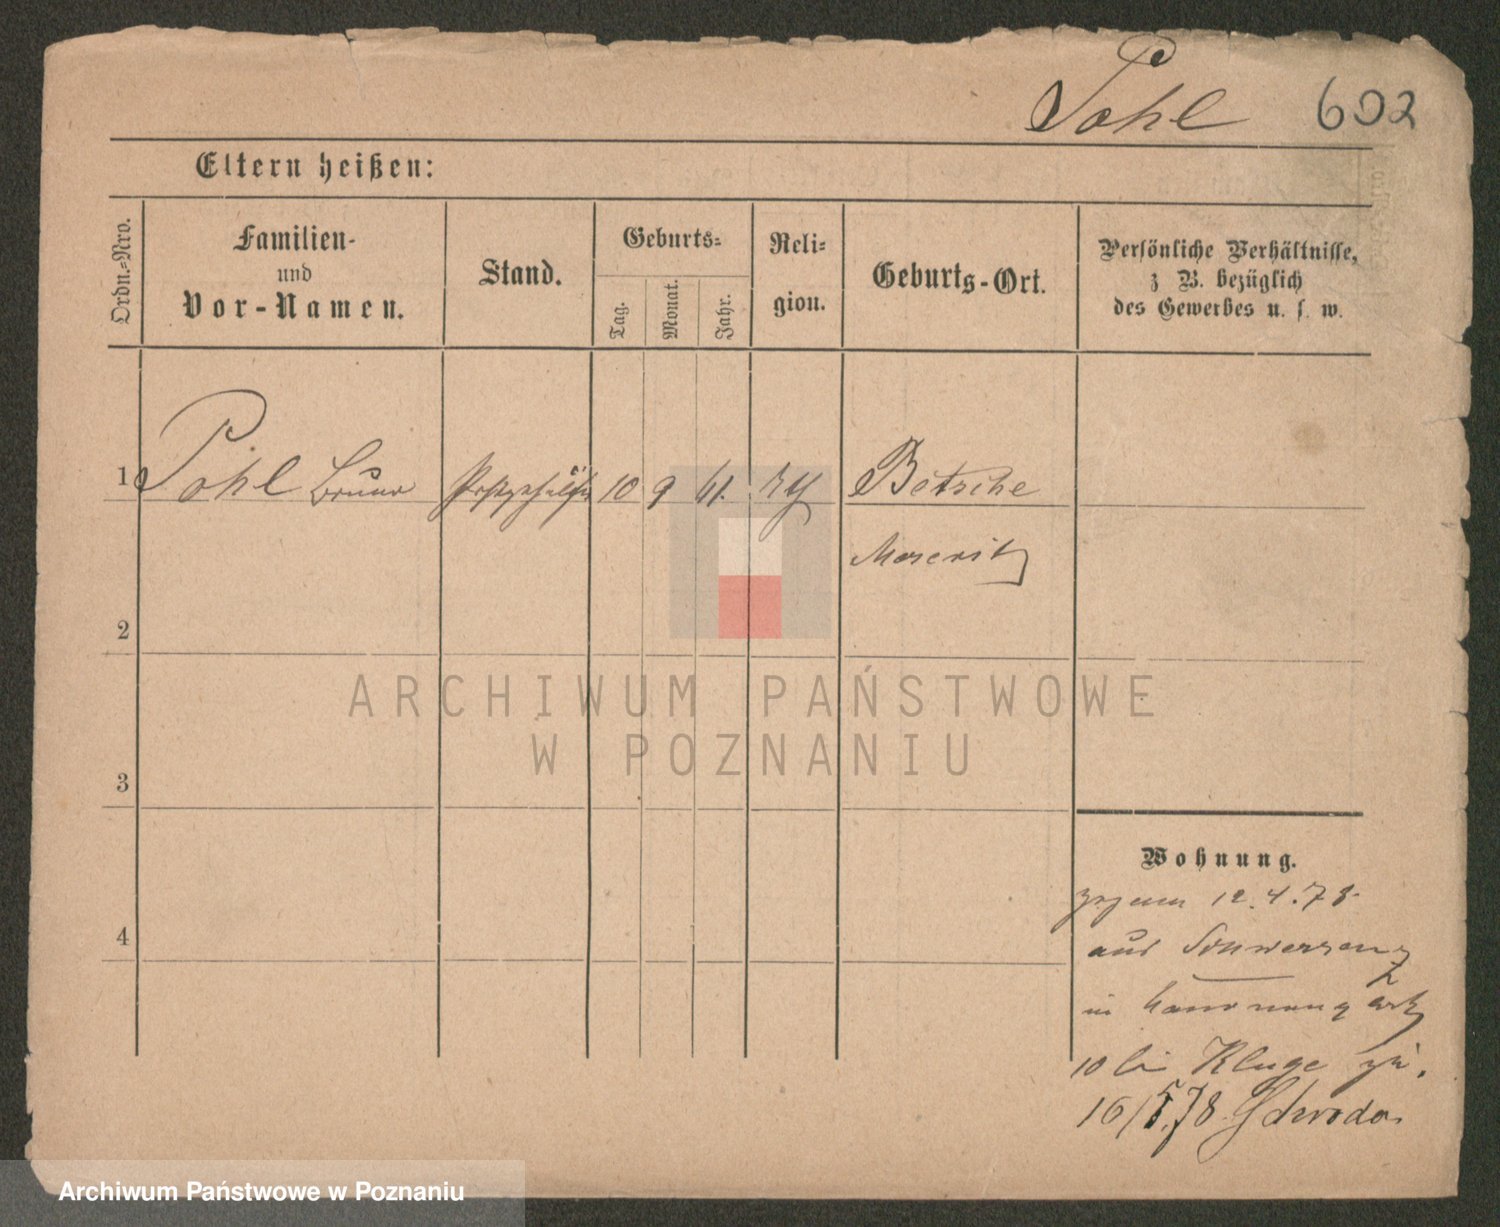 Pohl 602
Eltern heißen:
Ordn.-Nro.
Familien-
und
Vor-Namen.
Stand.
Geburts-
Tag.
Monat.
Jahr.
Reli-
gion.
Geburts-Ort.
Persönliche Verhältnisse,
z B. bezüglich
des Gewerbes u. s. w.
1 Pohl Bruno Postgehülfe 10 9 61. Betsche
Meseritz
2
3
4
Wohnung.
12.4.78
aus
in
10 bei Kluge
16/5.78 Schroda
ARCHIWUM PAŃSTWOWE
W POZNANIU
Archiwum Państwowe w Poznaniu